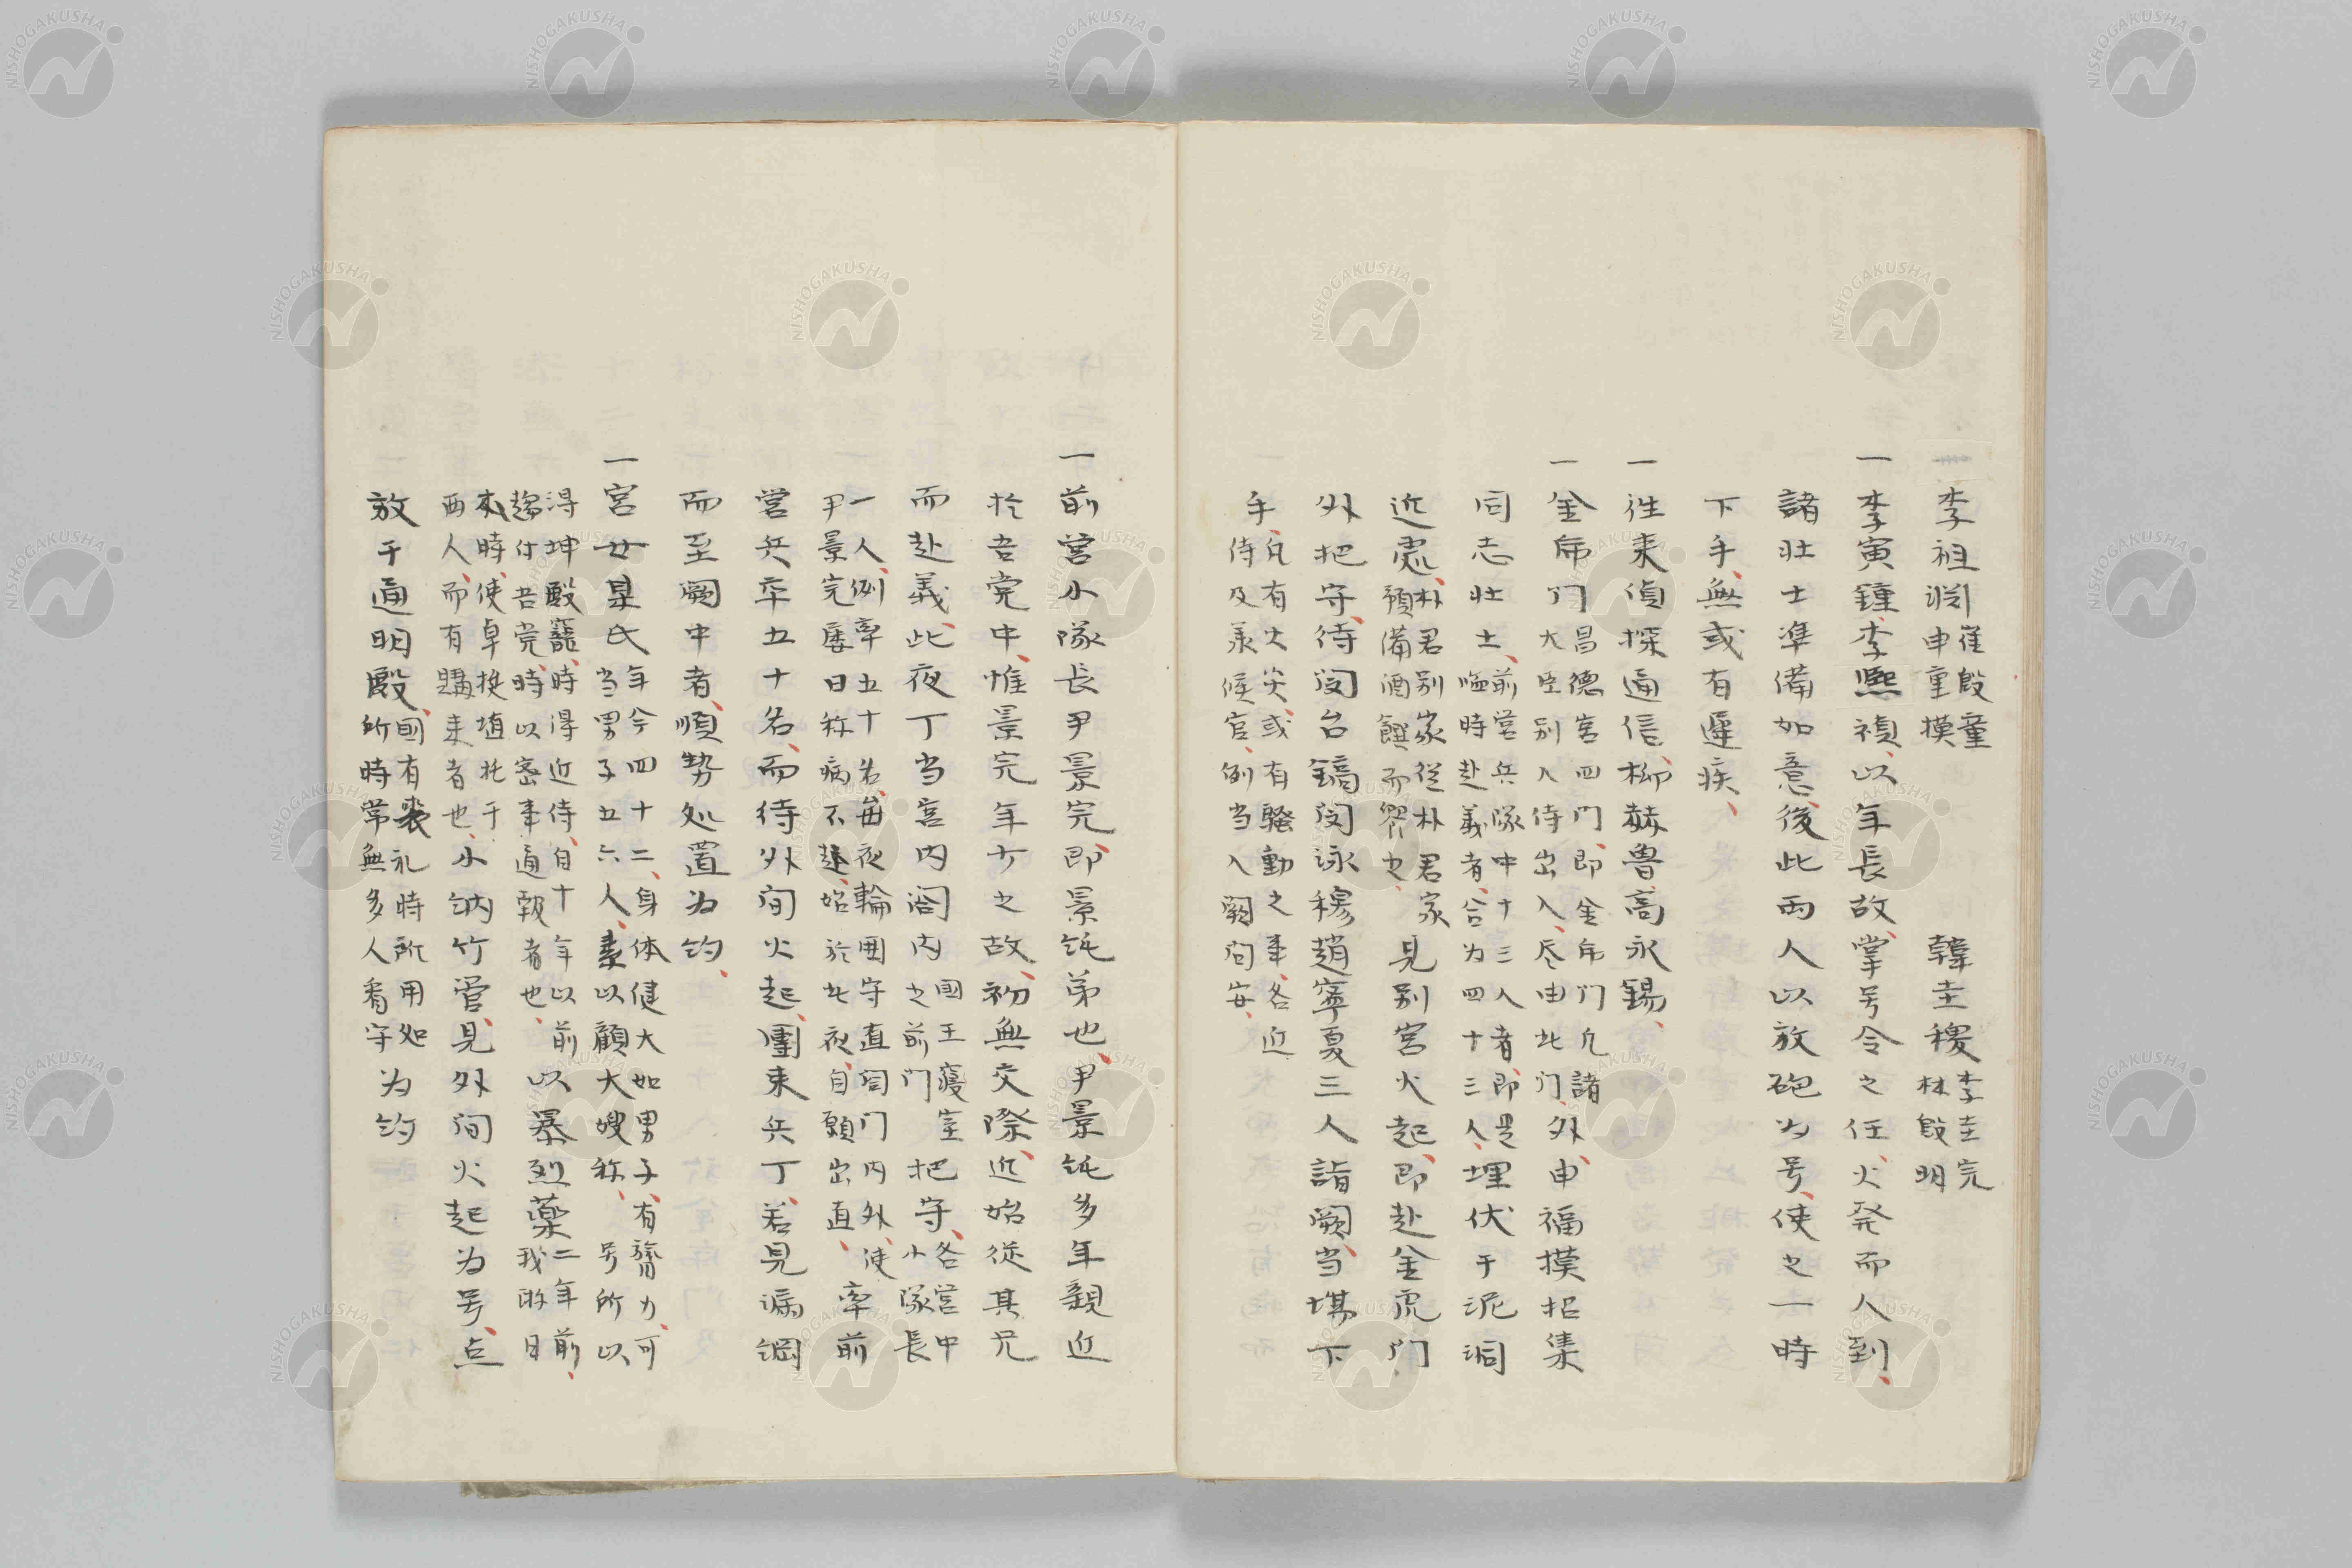 李祖淵 崔殷童 申重模 韓圭稷 李圭完 林殷明
一李寅鐘、李熙禎、以年長故、掌号令之任、火発而人到、
諸壮士準備如意後、此両人以放砲為号、使之一時
下手、無或有遅疾、
一往来偵探通信、柳赫魯、高永錫、
一金帍門 昌徳宮四門、即金帍門凡諸 大臣別入侍出入、尽由此門、外、申福摸招集
同志壮士、前営兵隊中十三人者、即是 臨時赴義者、合為四十三人、埋伏于泥洞
近處、朴君別家従朴君家 預備酒饌而饗之、見別宮火起、即赴金虎門
外把守、待閔台鎬閔泳穆趙寧夏三人詣闕、当場下
手、凡有火災、或有騒動之事、各近 侍及承候官、例当入闕問安、
一前営小隊長尹景完、即景純弟也、尹景純多年親近
於吾党中、惟景完年少之故、初無交際、近始従其兄
而赴義、此夜丁当宮内閤内 國王寝室 之前門 把守、各営中 小隊長
一人、例率五十名、毎夜輪囬守直閤門内外、使 尹景完屡日称病不赴、始於此夜、自願出直、率前
営兵卒五十名、而待外間火起、團束兵丁、若見漏網
而至闕中者、順勢処置為約、
一宮女某氏 年今四十二、身体健大如男子、有膂力、可 当男子五六人、素以顧大嫂称、号所以
得坤殿寵、時時得近侍、自十年以前 趨付吾党、時以密事通報者也、以暴烈薬 二年前、 我游日
本時、使卓挺埴托于 西人、而有購来者也、小納竹管、見外間火起為号、点
放于通明殿、國有喪礼時所用処 所時常無多人看守為約